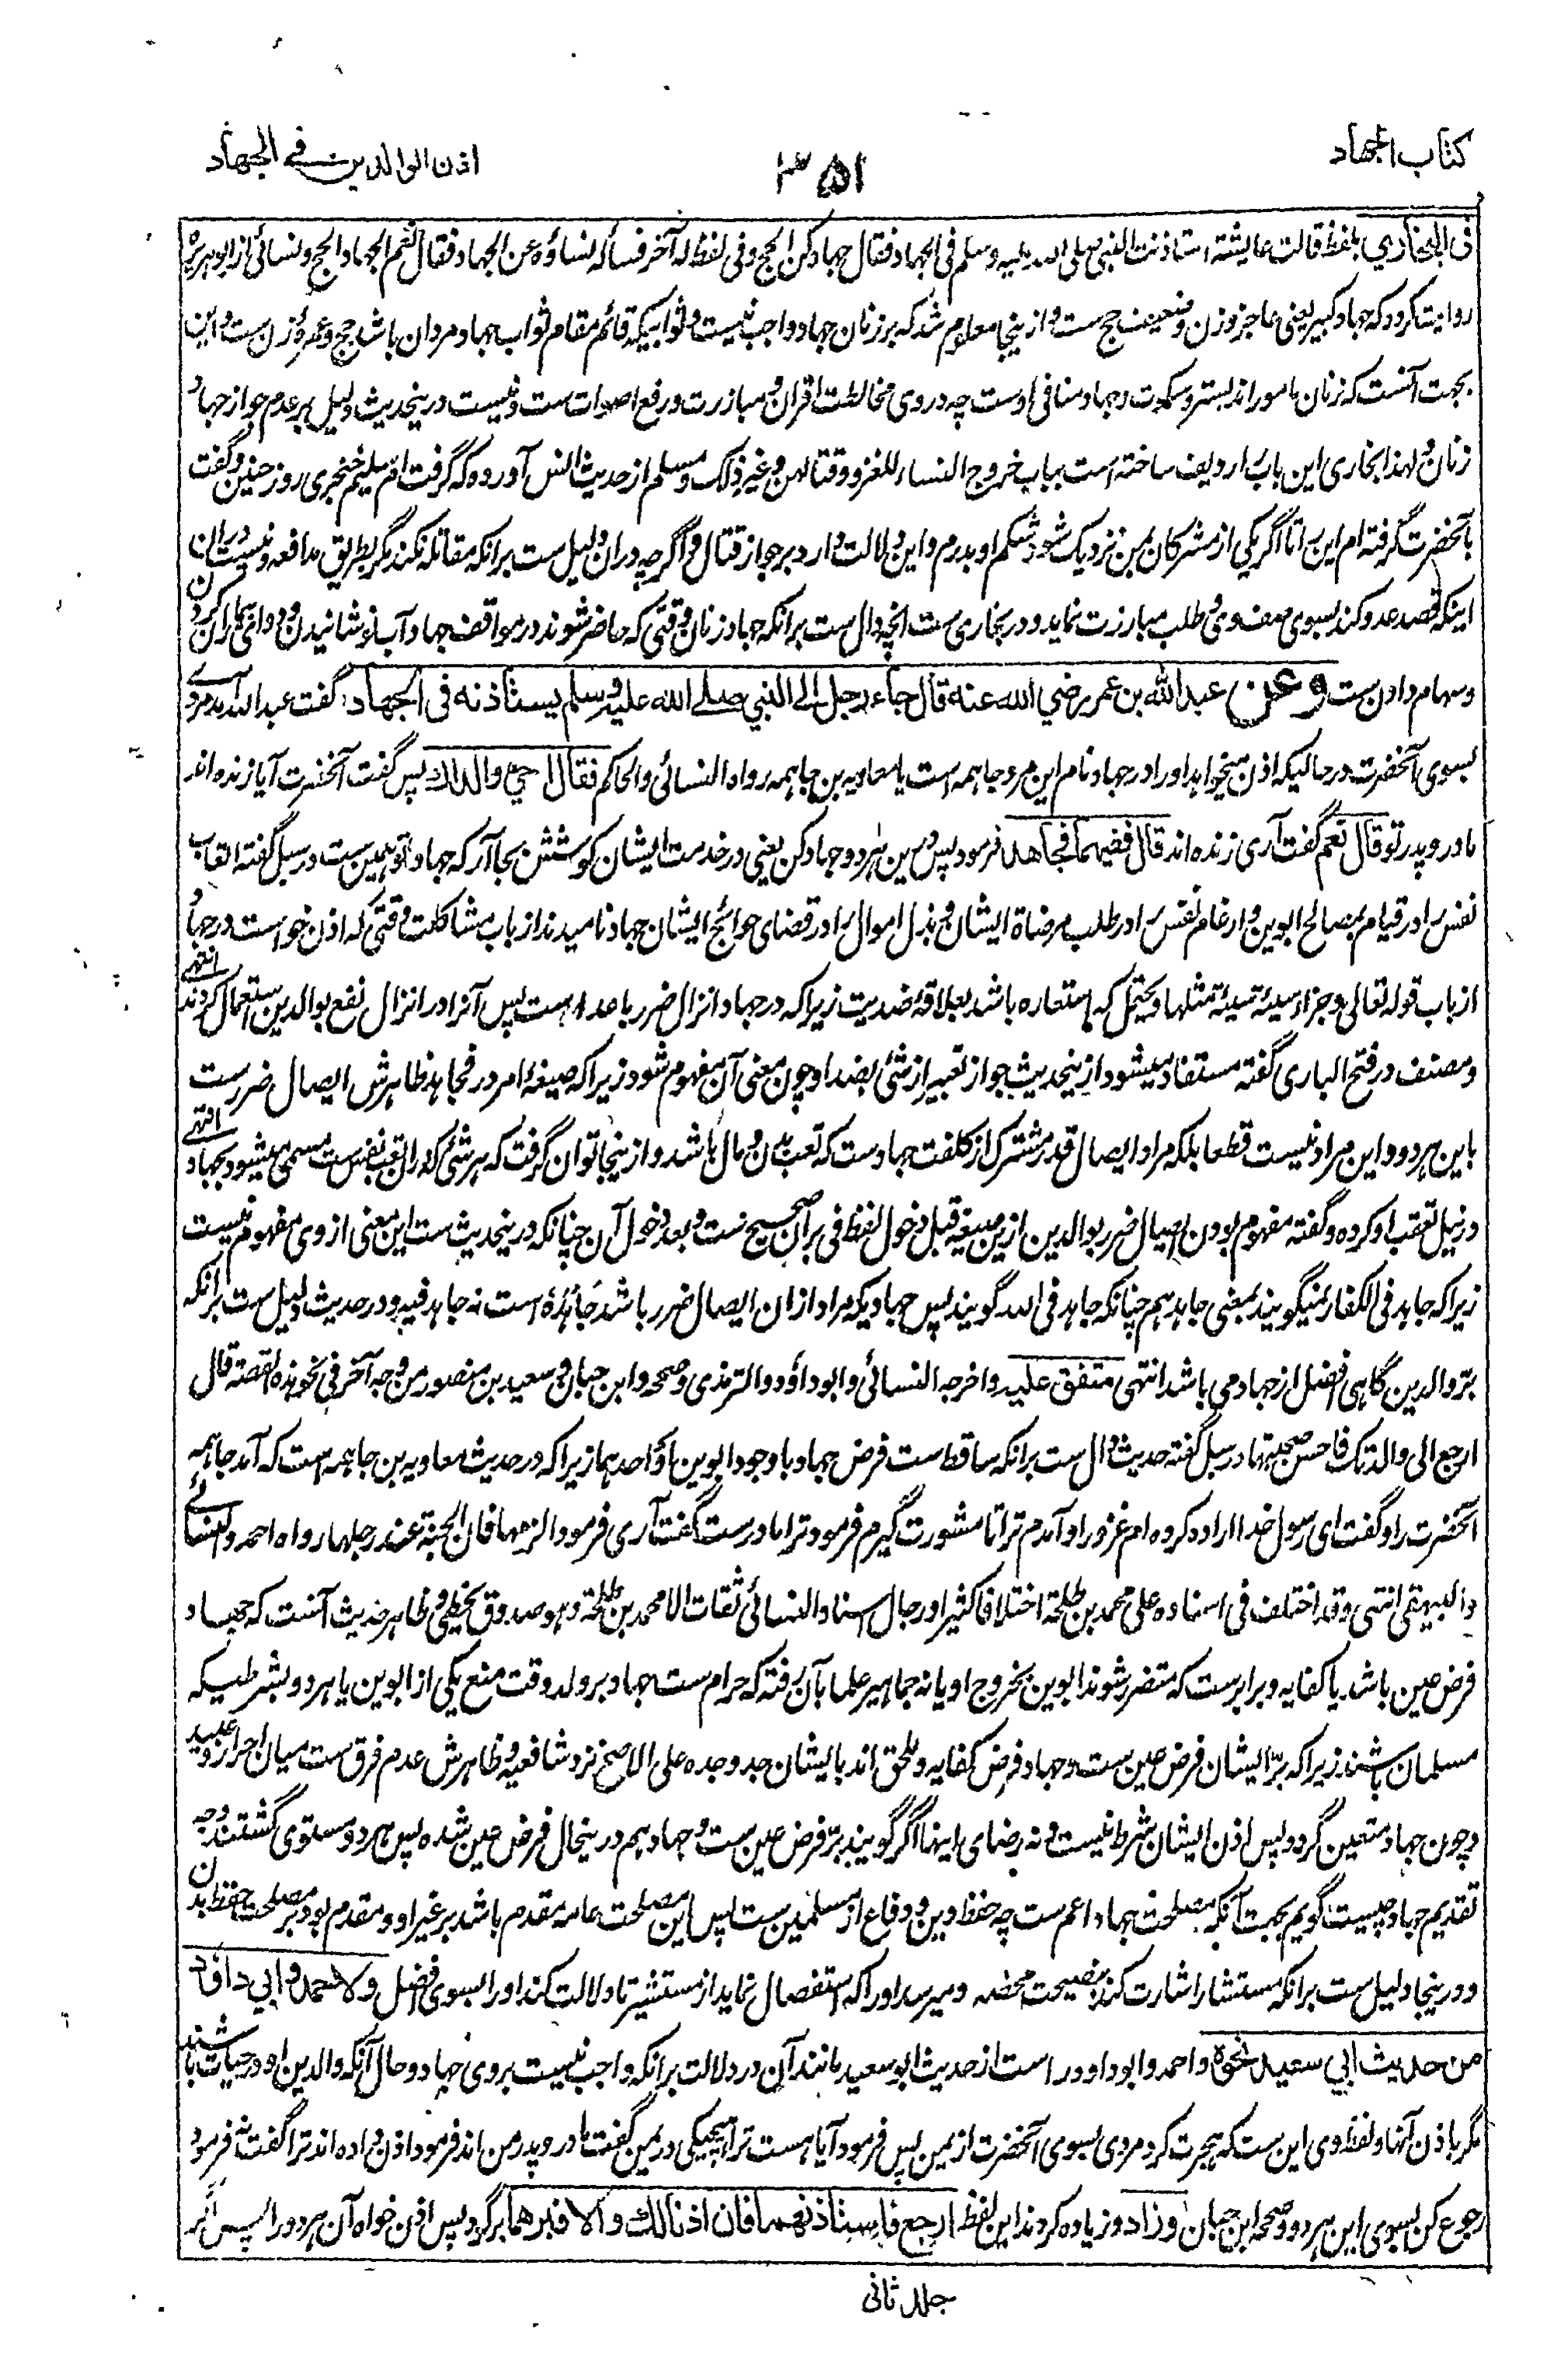 کتاب الجهاد
۳۵۱
اذن الوالدین فی الجهاد
فی البخاري بلفظ قالت عایشة استاذنت النبی صلی الله علیه وسلم فی الجهاد فقال جهادکن الحج وفی لفظ له آخر فسأله نساؤه عن الجهاد فقال نعم الجهاد الحج ونسائی از ابوهریره
روایت کرد که جهاد کبیر یعنی عاجز وزن وضعیف حج ست و ازینجا معلوم شد که بر زنان جهاد واجب نیست وثوابیکه قائم مقام ثواب جهاد مردان باشد حج وعمرهٔ زن ست واین
بجهت آنست که زنان مامور اند بستر وسکوت وجهاد منافی اوست چه در وی مخالطت اقران ومبازرت ورفع اصوات ست ونیست درینحدیث دلیل بر عدم جواز جهاد
زنان ولهذا بخاری این باب را ردیف ساخته است بباب خروج النساء للغزو وقتالهن وغیر ذلک ومسلم از حدیث انس آورده که گرفت ام سلیم خنجری روز حنین وگفت
بآنحضرت گرفته ام این را تا اگر یکی از مشرکان بمن نزدیک شود شکم او بدرم واین دلالت دارد بر جواز قتال واگرچه دران دلیل ست برانکه مقاتله نکند مگر بطریق مدافعه ونیست دران
اینکه قصد عدو کند بسوی صف وی وطلب مبارزت نماید ودر بخاری ست انچه دال ست برانکه جهاد زنان وقتی که حاضر شوند در مواقف جهاد آب نوشانیدن ودوای بیماران کردن
وسهام دادن ست وعن عبدالله بن عمر رضي الله عنه قال جاء رجل الی النبي صلے الله علیه وسلم یستاذنه فی الجهاد گفت عبدالله آمد مردے
بسوی آنحضرت در حالیکه اذن میخواهد او را در جهاد ونام این مرد جاهمه است یا معاویه بن جاهمه رواه النسائی والحاکم فقال احي والداك پس گفت آنحضرت آیا زنده اند
مادر و پدر تو قال نعم گفت آری زنده اند قال ففیهما فجاهد فرمود پس درین هر دو جهاد کن یعنی در خدمت ایشان کوشش بجا آر که جهاد تو همین ست در سبل گفته اتعاب
نفس را در قیام بمصالح ابوین وارغام نفس را در طلب مرضاة ایشان وبذل اموال را در قضای حوائج ایشان جهاد نامیدند از باب مشاکلت وقتی که اذن خواست در جهاد
از باب قوله تعالی وجزاء سیئة سیئة مثلها ویحتمل که استعاره باشد بعلاقهٔ ضدیت زیرا که در جهاد انزال ضرر باعداء است پس آنرا در انزال نفع بوالدین استعمال کردند انتهی
ومصنف در فتح الباری گفته مستفاد میشود ازینحدیث جواز تعبیر از شئی بضد او چون معنی آن مفهوم شود زیرا که صیغهٔ امر در فجاهد ظاهرش ایصال ضررست
باین هر دو واین مراد نیست قطعا بلکه مراد ایصال قدر مشترک از کلفت جهادست که تعب بدن ومال باشد وازینجا توان گرفت که هر شئی که دران تعب نفس ست مسمی میشود بجهاد انتهی
در نیل تعقب او کرده وگفته مفهوم بودن ایصال ضرر بوالدین ازین صیغه قبل دخول لفظ فی بران صحیح ست وبعد دخول آن چنانکه درینحدیث ست این معنی از وی مفهوم نیست
زیرا که جاهد فی الکفار نمیگویند بمعنی جاهدهم چنانکه جاهد فی الله گویند پس جهادیکه مراد ازان ایصال ضرر باشد جاهدهٔ است نه جاهد فیه ودر حدیث دلیل ست برانکه
برّ والدین گاهی افضل از جهاد می باشد انتهی متفق علیه واخرجه النسائی وابو داؤد والترمذی وصححه وابن حبان وسعید بن منصور من وجه آخر فی نحو هذه القصة قال
ارجع الی والدتک فاحسن صحبتهما در سبل گفته حدیث دال ست برانکه ساقط ست فرض جهاد با وجود ابوین یا احدهما زیرا که در حدیث معاویه بن جاهمه ست که آمد جاهمه
آنحضرت را وگفت ای رسول خدا اراده کرده ام غزو را وآمدم ترا تا مشورت گیرم فرمود ترا مادرست گفت آری فرمود الزمها فان الجنة عند رجلها رواه احمد والنسائے
والبیهقی انتهی وقد اختلف فی اسناده علی محمد بن طلحة اختلافا کثیرا ورجال اسناد النسائی ثقات الا محمد بن طلحة وهو صدوق یخطی وظاهر حدیث آنست که جهاد
فرض عین باشد یا کفایه وبرابرست که متضرر شوند ابوین بخروج او یا نه جماهیر علما بآن رفته که حرام ست جهاد بر ولد وقت منع یکی از ابوین یا هر دو بشرطیکه
مسلمان باشند زیرا که برّ ایشان فرض عین ست وجهاد فرض کفایه وملحق اند بایشان جد وجده علی الاصح نزد شافعیه وظاهرش عدم فرق ست میان احرار وعبید
وچون جهاد متعین گردد پس اذن ایشان شرط نیست ونه رضای اینها اگر گویند برّ فرض عین ست وجهاد هم درینحال فرض عین شده پس هر دو مستوی گشتند وجه
تقدیم جهاد چیست گویم بجهت آنکه مصلحت جهاد اعم ست چه حفظ دین ودفاع از مسلمین ست پس این مصلحت عامه مقدم باشد بر غیر او ومقدم بود بر مصلحت حفظ بدن
ودرینجا دلیل ست برانکه مستشار اشارت کند بنصیحت محضه ومیرسد او را که استفصال نماید از مستشیر تا دلالت کند او را بسوی افضل ولاحمد وابي داؤد
من حدیث ابي سعید نحوه واحمد وابو داود راست از حدیث ابوسعید مانند آن در دلالت برانکه واجب نیست بر وی جهاد وحال آنکه والدین او در حیات باشند
مگر باذن آنها ولفظ وی این ست که هجرت کرد مردی بسوی آنحضرت از یمن پس فرمود آیا هست ترا هیچیکی در یمن گفت مادر و پدر من اند فرمود اذن داده اند ترا گفت نه فرمود
رجوع کن بسوی این هر دو وصححه ابن حبان وزاد وزیاده کردند این لفظ ارجع فاستاذنهما فان اذنا لك والا فبرهما برگرد پس اذن خواه آن هر دو را پس اگر
جلد ثانی